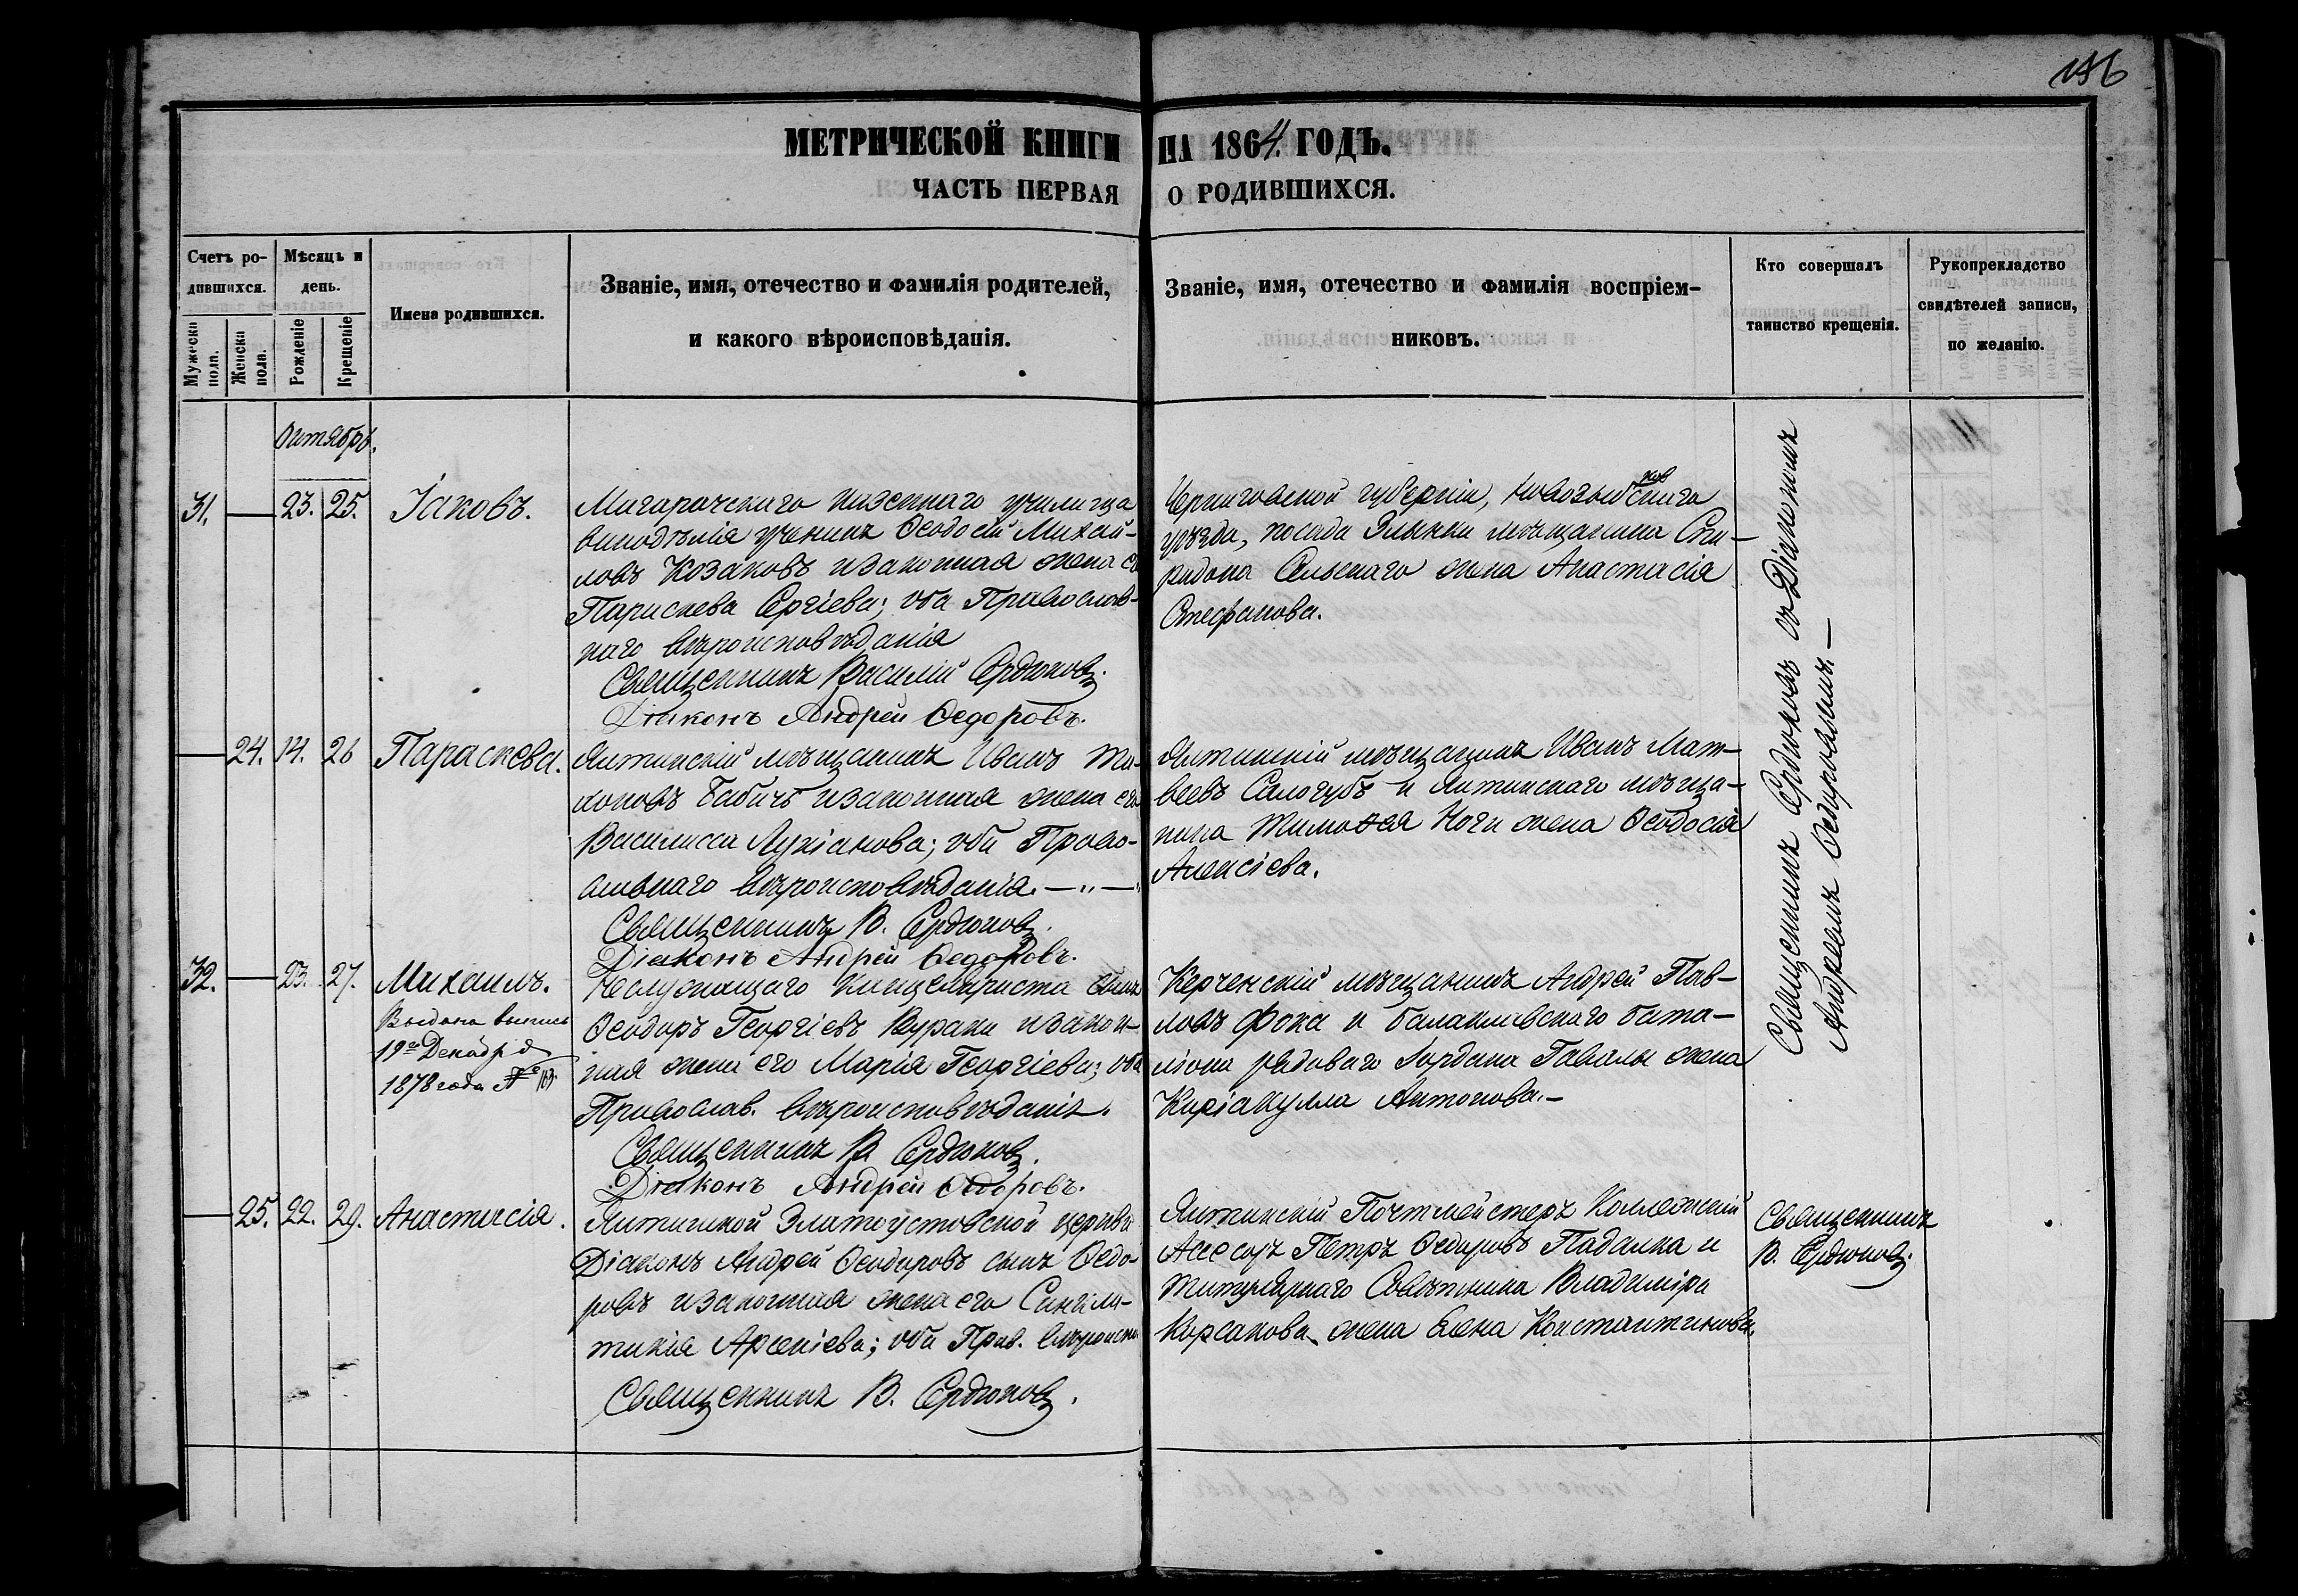 МЕТРИЧЕСКОЙ КНИГИ НА 1864. ГОДЪ.
ЧАСТЬ ПЕРВАЯ О РОДИВШИХСЯ.
Счетъ родившихся.
Мужеска пола.
Женска пола.
Мѣсяцъ и день.
Рожденіе
Крещеніе
Имена родившихся.
Званіе, имя, отечество и фамилія родителей,
и какого вѣроисповѣданія.
Званіе, имя, отечество и фамилія воспріем-
никовъ.
Кто совершалъ
таинство крещенія.
Рукоприкладство
свидѣтелей записи,
по желанію.
Октябрь.
31. — 23. 25. Іаковъ.
Магарачскаго казеннаго училища
винодѣлія ученикъ Ѳеодосій Михай-
ловъ Козаковъ изаконная жена его
Парискева Сергіева; оба Православ-
наго вѣроисповѣданія
Священникъ Василій Сердюковъ.
Діаконъ Андрей Ѳедоровъ.
Черниговской губерніи, Новозыбковскаго
уѣзда, посада Злынки мѣщанина Спи-
ридона Сельскаго жена Анастасія
Стефанова.
— 24. 14. 26 Параскева.
Ялтинскій мѣщанинъ Иванъ Ти-
хоновъ Бабичъ изаконная жена его
Василисса Лукіанова; оба Право-
славнаго вѣроисповѣданія. —"—"
Священникъ В. Сердюковъ.
Діаконъ Андрей Ѳедоровъ.
Ялтинскій мѣщанинъ Иванъ Мат-
веевъ Сологубъ и Ялтинскаго мѣща-
нина Тимоѳея Ноги жена Ѳеодосія
Алексіева.
32. — 23. 27. Михаилъ.
Выдана выпись
19го Декабря
1878 года
Неслужащаго Канцеляриста сынъ
Ѳеодоръ Георгіевъ Кураки изакон-
ная жена его Марія Георгіева; оба
Православ. вѣроисповѣданія.
Священникъ В. Сердюковъ.
Діаконъ Андрей Ѳедоровъ.
Керченскій мѣщанинъ Андрей Пав-
ловъ Фока и балаклавскаго бата-
ліона рядоваго Іордана Гавалы жена
Киріакулла Антонова.—
— 25. 22. 29. Анастасія.
Ялтинской Златоустовской церкви
Діаконъ Андрей Ѳеодоровъ сынъ Ѳедо-
ровъ изаконная жена его Синкли-
тикія Арсеніева; оба Прав. вѣроиспов.
Священникъ В. Сердюковъ.
Ялтинскій Почтмейстеръ Коллежскій
Асессоръ Петръ Ѳедоровъ Падалка и
Титулярнаго Совѣтника Владиміра
Корсакова жена Елена Константинова.
Священникъ Сердюковъ съ Діакономъ
Андреемъ Ѳедоровымъ.—
Священникъ
В. Сердюковъ.